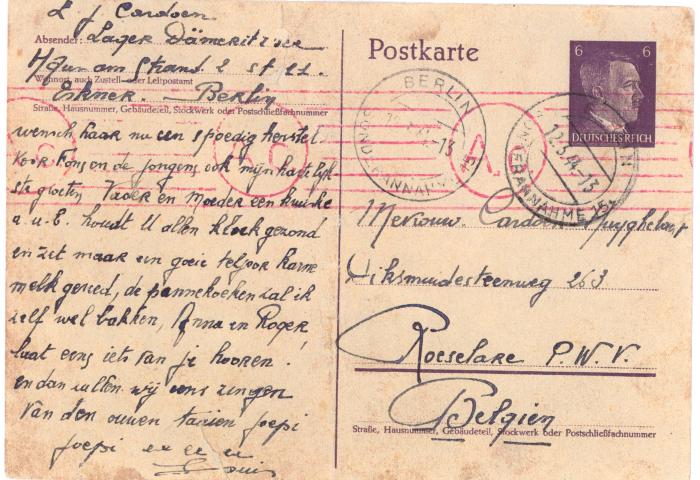 L J Cardoen
Absender: Lager Dämeritzsee
Haus am Strand 2 st 11.
Wohnort, auch Zustell- oder Leitpostamt
Erkner. - Berlin
Straße, Hausnummer, Gebäudeteil, Stockwerk oder Postschließfachnummer
wensch haar nu een spoedig herstel
Voor Fons en de jongens ook mijn hartelijk-
ste groeten Vader en Moeder een kruiske
a.u.b. houdt U allen kloek gezond
en zet maar een goeie teljoor karne
melk gereed, de pannekoeken zal ik
zelf wel bakken, Anna en Roger
laat eens iets van je hooren!
en dan zullen wij eens zingen
Van den ouwen tavien joepi
joepi
Louis
Postkarte
6 6
DEUTSCHES REICH
BERLIN
12.5.44-13
Mevrouw. Cardoen
263
Roeselare P.W.V.
Belgien
Straße, Hausnummer, Gebäudeteil, Stockwerk oder Postschließfachnummer